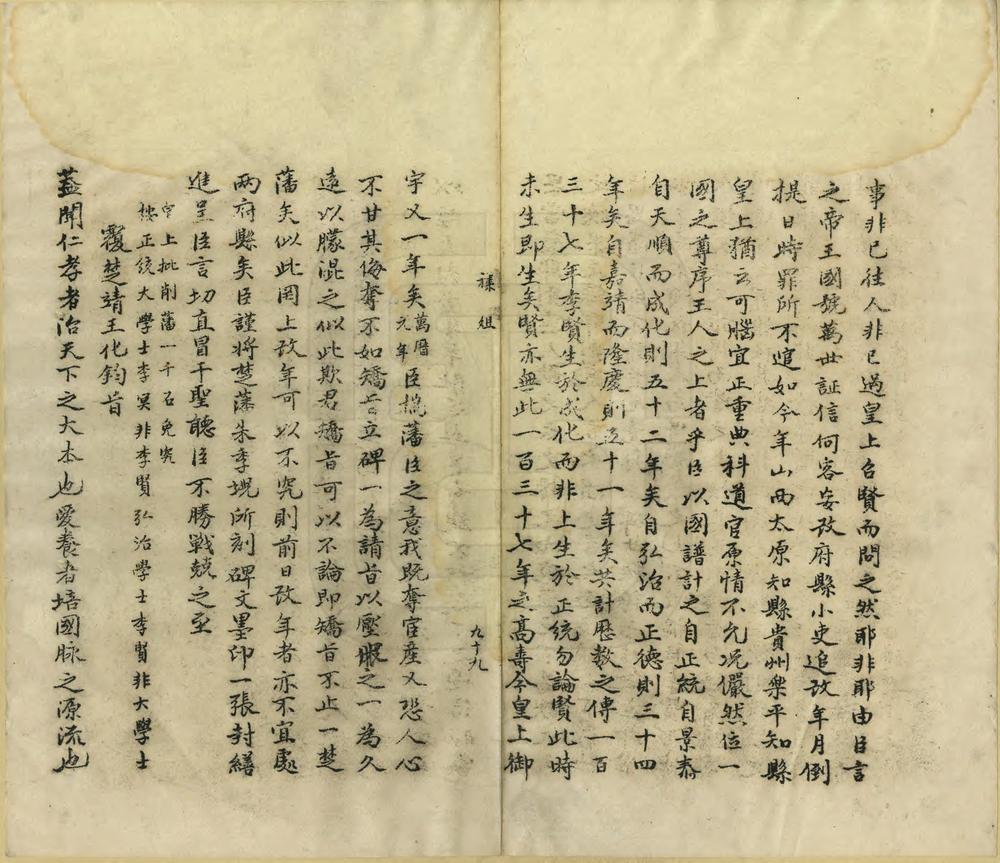 事非已往人非已過皇上召賢而問之然耶非耶由臣言
之帝王國號萬世証信何容妄改府縣小吏追改年月倒
提日時罪所不逭如今年山西太原知縣貴州樂平知縣
皇上猶云可惱宜正重典科道官原情不允况儼然位一
國之尊序王人之上者乎臣以國譜計之自正統自景泰
自天順而成化則五十二年矣自弘治而正德則三十四
年矣自嘉靖而隆慶則五十一年矣共計歷数之傳一百
三十七年李賢生於成化而非上生於正統勿論賢此時
未生即生矣賢亦無此一百三十七年之高壽今皇上御
禄組
九十九
宇又一年矣萬曆元年臣揣藩臣之意我既奪官產又恐人心
不甘其侮奪不如矯旨立碑一為請旨以壓服之一為久
遠以朦混之似此欺君矯旨可以不論即矯旨不止一楚
藩矣似此罔上改年可以不究則前日改年者亦不宜處
两府縣矣臣謹將楚藩朱季堄所刻碑文墨印一張封繕
進呈臣言切直冒干聖聽臣不勝戰兢之至
上批削藩一千石免究
正統大學士李冥非李賢弘治學士李賢非大學士
覆楚靖王化鈞旨
蓋聞仁孝者治天下之大本也愛養者培國脉之源流也